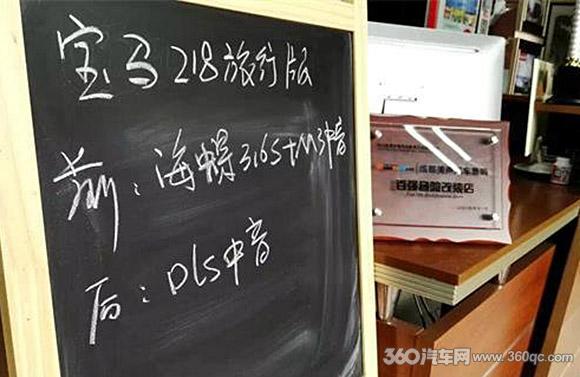 宝马218旅行版
前：海螺316S+M3中音
后：DLS中音
百强音响改装店
360汽车网 www.360qc.com